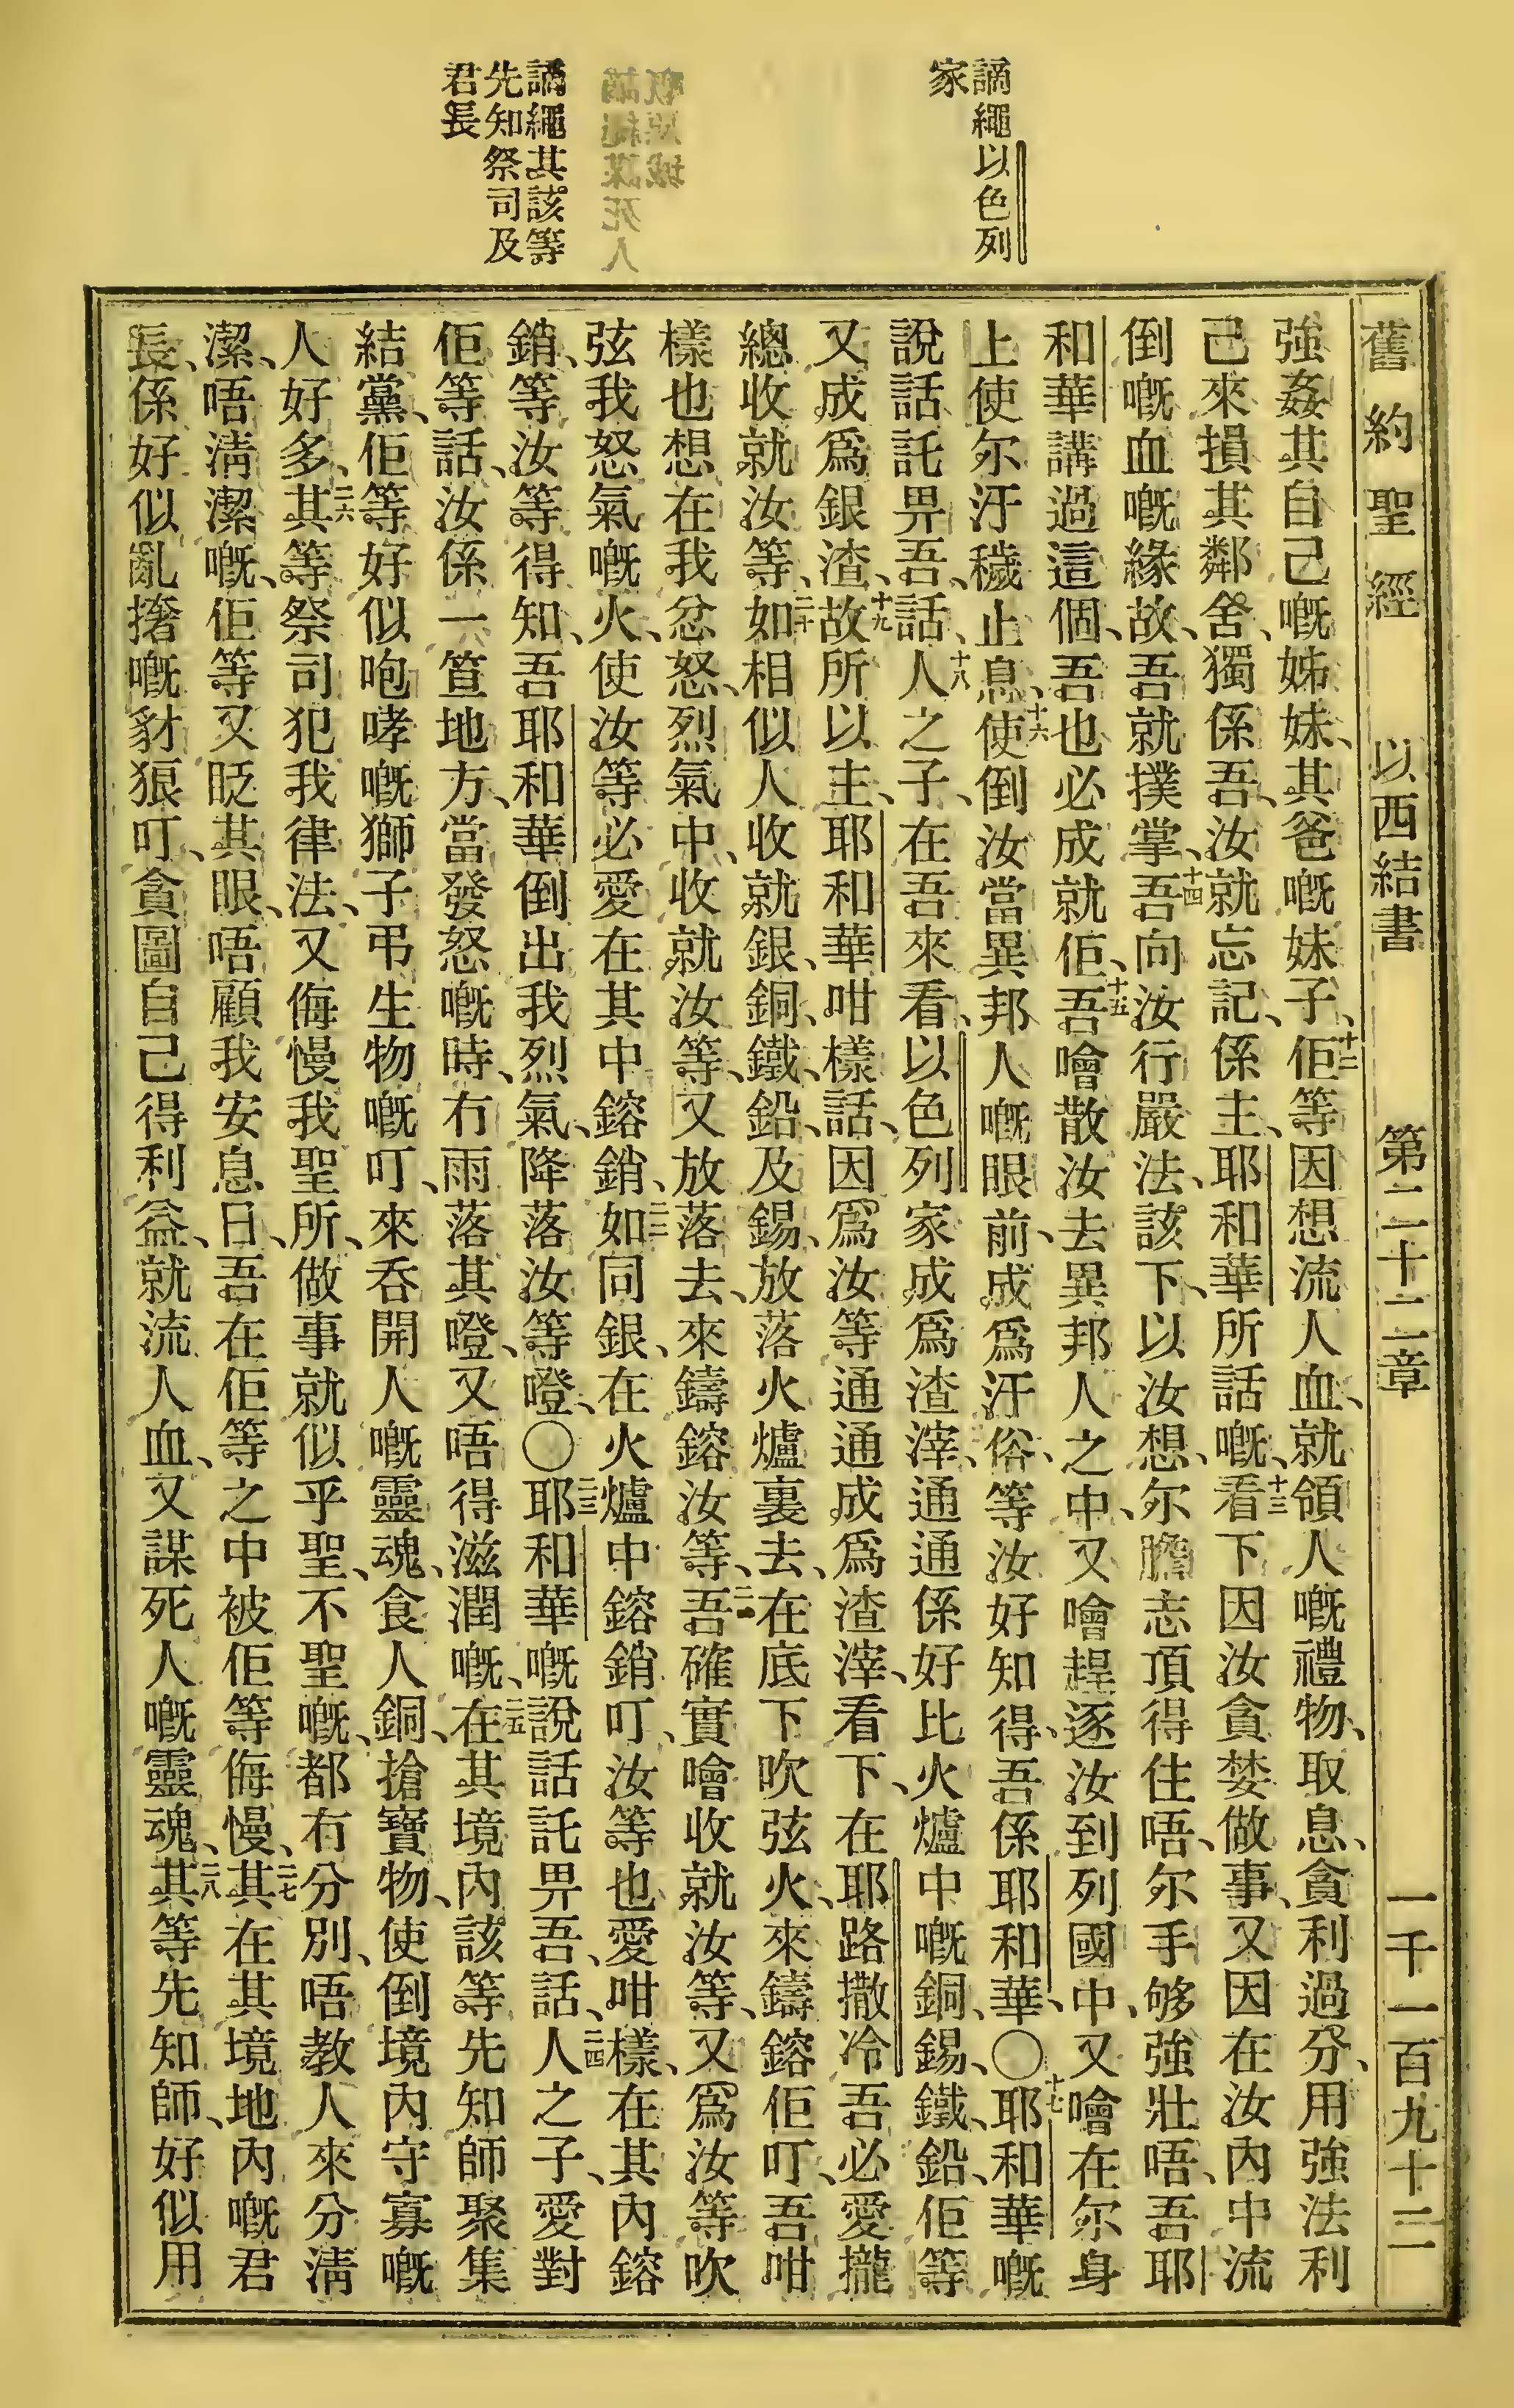 舊約聖經　以西結書　第二十二章　一千一百九十三
謫繩以色列
家
謫繩其該等
先知祭司及
君長
強姦其自己嘅姊妹、其爸嘅妹子、十二佢等因想流人血、就領人嘅禮物、取息、貪利過分、用強法利
己來損其鄰舍、獨係吾、汝就忘記、係主、耶和華所話嘅、十三看下因汝貪婪做事、又因在汝內中流
倒嘅血嘅緣故、吾就撲掌、十四吾向汝行嚴法、該下、以汝想、尔膽志頂得住唔、尔手够強壯唔、吾耶
和華講過這個、吾也必成就佢、十五吾噲散汝去異邦人之中、又噲趕逐汝到列國中、又噲在尔身
上使尔汙穢止息、十六使倒汝當異邦人嘅眼前、成爲汙俗、等汝好知得、吾係耶和華、〇十七耶和華嘅
說話託畀吾、話、十八人之子、在吾來看、以色列家成爲渣滓、通通係好比火爐中嘅銅、錫、鐵、鉛、佢等
又成爲銀渣、十九故所以主、耶和華咁樣話、因爲汝等通通成爲渣滓、看下、在耶路撒冷吾必愛攏
總收就汝等、二十如相似人收就銀、銅、鐵、鉛、及錫、放落火爐裏去、在底下吹弦火、來鑄鎔佢叮、吾咁
樣也想在我忿怒、烈氣中、收就汝等、又放落去、來鑄鎔汝等、二一吾確實噲收就汝等、又爲汝等吹
弦我怒氣嘅火、使汝等必愛在其中鎔銷、二二如同銀、在火爐中鎔銷叮、汝等也愛咁樣、在其內鎔
銷、等汝等得知、吾耶和華倒出我烈氣、降落汝等噔、〇二三耶和華嘅說話託畀吾、話、二四人之子、愛對
佢等話、汝係一笪地方、當發怒嘅時、冇雨落其噔、又唔得滋潤嘅、二五在其境內該等先知師聚集
結黨、佢等好似咆哮嘅獅子弔生物嘅叮、來吞開人嘅靈魂、食人銅、搶寶物、使倒境內守寡嘅
人好多、二六其等祭司犯我律法、又侮慢我聖所、做事就似乎聖、不聖嘅、都冇分別、唔教人來分清
潔、唔清潔嘅、佢等又眨其眼、唔顧我安息日、吾在佢等之中被佢等侮慢、二七其在其境地內嘅君
長、係好似亂撦嘅豺狼叮、貪圖自己得利益、就流人血、又謀死人嘅靈魂、二八其等先知師、好似用